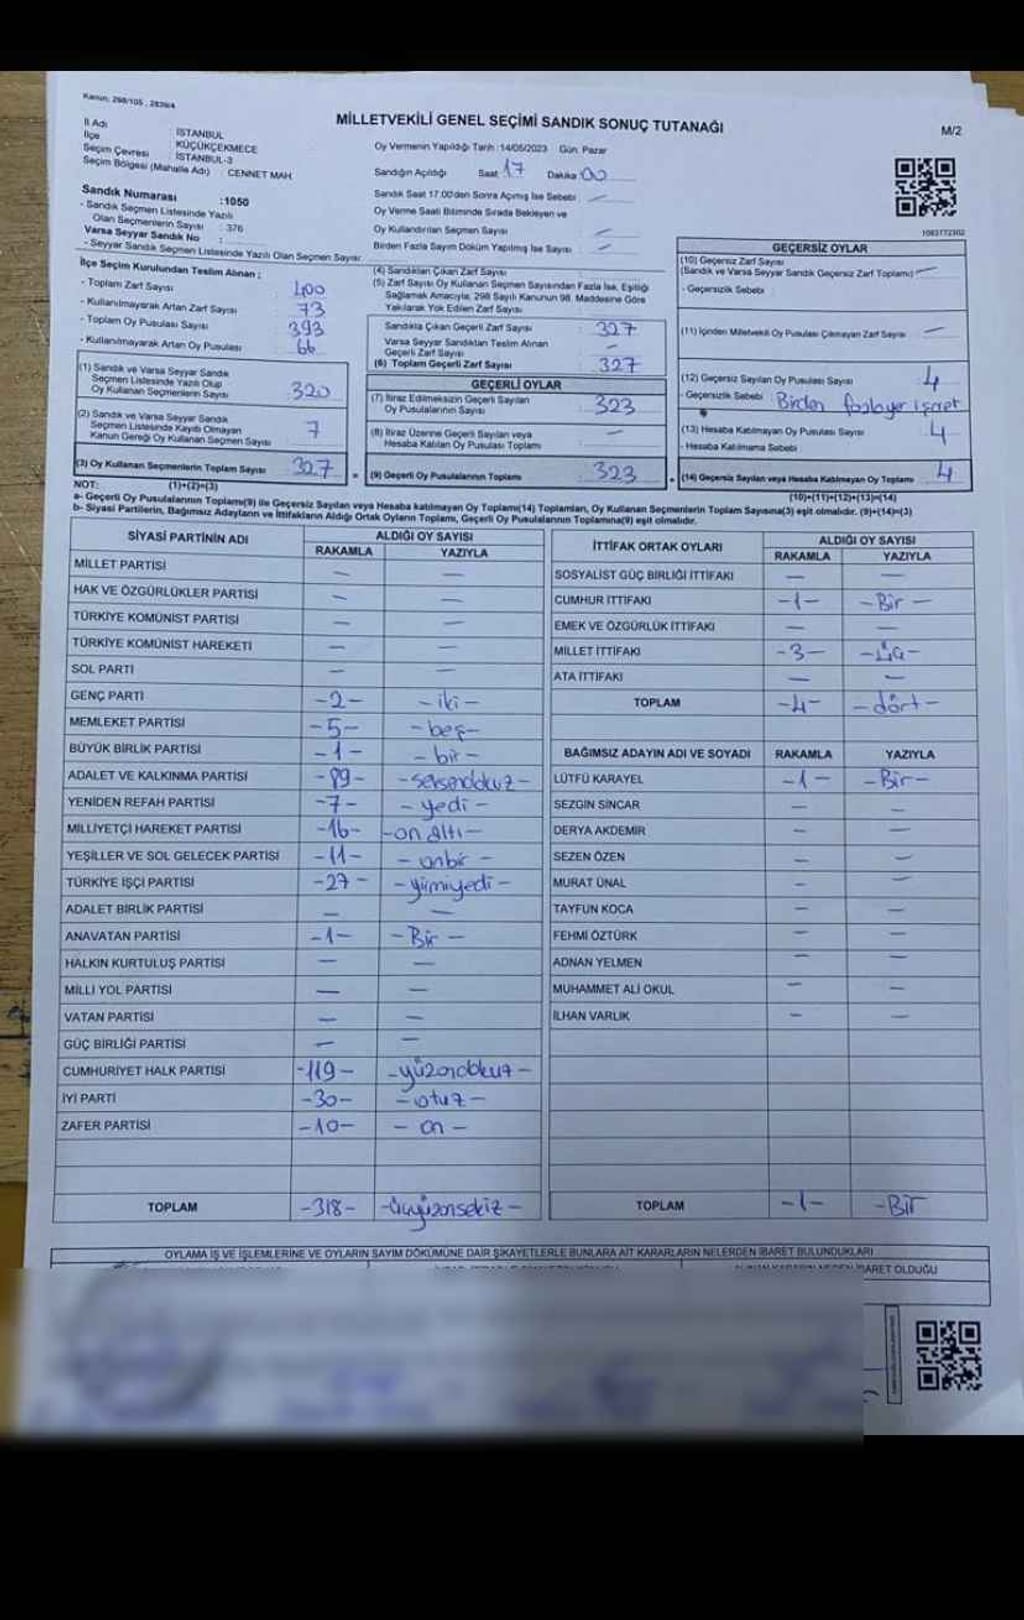 Kanun: 298/105 , 2839/4
MİLLETVEKİLİ GENEL SEÇİMİ SANDIK SONUÇ TUTANAĞI
M/2
İl Adı : İSTANBUL
İlçe : KÜÇÜKÇEKMECE
Seçim Çevresi : İSTANBUL-3
Seçim Bölgesi (Mahalle Adı) : CENNET MAH.
Sandık Numarası :1050
- Sandık Seçmen Listesinde Yazılı
Olan Seçmenlerin Sayısı : 376
Varsa Seyyar Sandık No :
- Seyyar Sandık Seçmen Listesinde Yazılı Olan Seçmen Sayısı
Oy Vermenin Yapıldığı Tarih :14/05/2023 Gün: Pazar
Sandığın Açıldığı Saat 17 Dakika 00
Sandık Saat 17.00'den Sonra Açılmış İse Sebebi : —
Oy Verme Saati Bitiminde Sırada Bekleyen ve
Oy Kullandırılan Seçmen Sayısı : —
Birden Fazla Sayım Döküm Yapılmış İse Sayısı : —
1083772302
İlçe Seçim Kurulundan Teslim Alınan ;
- Toplam Zarf Sayısı : 400
- Kullanılmayarak Artan Zarf Sayısı : 73
- Toplam Oy Pusulası Sayısı : 393
- Kullanılmayarak Artan Oy Pusulası : 66
(1) Sandık ve Varsa Seyyar Sandık
Seçmen Listesinde Yazılı Olup
Oy Kullanan Seçmenlerin Sayısı 320
(2) Sandık ve Varsa Seyyar Sandık
Seçmen Listesinde Kayıtlı Olmayan
Kanun Gereği Oy Kullanan Seçmen Sayısı 7
(3) Oy Kullanan Seçmenlerin Toplam Sayısı 327
(1)+(2)=(3)
(4) Sandıktan Çıkan Zarf Sayısı :
(5) Zarf Sayısı Oy Kullanan Seçmen Sayısından Fazla İse, Eşitliği
Sağlamak Amacıyla, 298 Sayılı Kanunun 98. Maddesine Göre
Yakılarak Yok Edilen Zarf Sayısı :
Sandıkta Çıkan Geçerli Zarf Sayısı : 327
Varsa Seyyar Sandıktan Teslim Alınan
Geçerli Zarf Sayısı : —
(6) Toplam Geçerli Zarf Sayısı : 327
GEÇERLİ OYLAR
(7) İtiraz Edilmeksizin Geçerli Sayılan
Oy Pusulalarının Sayısı : 323
(8) İtiraz Üzerine Geçerli Sayılan veya
Hesaba Katılan Oy Pusulası Toplamı : —
(9) Geçerli Oy Pusulalarının Toplamı : 323
GEÇERSİZ OYLAR
(10) Geçersiz Zarf Sayısı
(Sandık ve Varsa Seyyar Sandık Geçersiz Zarf Toplamı) —
- Geçersizlik Sebebi :
(11) İçinden Milletvekili Oy Pusulası Çıkmayan Zarf Sayısı : —
(12) Geçersiz Sayılan Oy Pusulası Sayısı : 4
- Geçersizlik Sebebi : Birden işaret
(13) Hesaba Katılmayan Oy Pusulası Sayısı : 4
- Hesaba Katılmama Sebebi :
(14) Geçersiz Sayılan veya Hesaba Katılmayan Oy Toplamı : 4
(10)+(11)+(12)+(13)=(14)
NOT:
a- Geçerli Oy Pusulalarının Toplamı(9) ile Geçersiz Sayılan veya Hesaba katılmayan Oy Toplamı(14) Toplamları, Oy Kullanan Seçmenlerin Toplam Sayısına(3) eşit olmalıdır. (9)+(14)=(3)
b- Siyasi Partilerin, Bağımsız Adayların ve İttifakların Aldığı Ortak Oyların Toplamı, Geçerli Oy Pusulalarının Toplamına(9) eşit olmalıdır.
SİYASİ PARTİNİN ADI ALDIĞI OY SAYISI
RAKAMLA YAZIYLA
MİLLET PARTİSİ — —
HAK VE ÖZGÜRLÜKLER PARTİSİ — —
TÜRKİYE KOMÜNİST PARTİSİ — —
TÜRKİYE KOMÜNİST HAREKETİ — —
SOL PARTİ — —
GENÇ PARTİ -2- -iki-
MEMLEKET PARTİSİ -5- -beş-
BÜYÜK BİRLİK PARTİSİ -1- -bir-
ADALET VE KALKINMA PARTİSİ -89- -seksendokuz-
YENİDEN REFAH PARTİSİ -7- -yedi-
MİLLİYETÇİ HAREKET PARTİSİ -16- -on altı-
YEŞİLLER VE SOL GELECEK PARTİSİ -11- -onbir-
TÜRKİYE İŞÇİ PARTİSİ -27- -yirmiyedi-
ADALET BİRLİK PARTİSİ — —
ANAVATAN PARTİSİ -1- -Bir-
HALKIN KURTULUŞ PARTİSİ — —
MİLLİ YOL PARTİSİ — —
VATAN PARTİSİ — —
GÜÇ BİRLİĞİ PARTİSİ — —
CUMHURİYET HALK PARTİSİ -119- -yüzondokuz-
İYİ PARTİ -30- -otuz-
ZAFER PARTİSİ -10- -on-
TOPLAM -318- -üçyüzonsekiz-
İTTİFAK ORTAK OYLARI ALDIĞI OY SAYISI
RAKAMLA YAZIYLA
SOSYALİST GÜÇ BİRLİĞİ İTTİFAKI — —
CUMHUR İTTİFAKI -1- -Bir-
EMEK VE ÖZGÜRLÜK İTTİFAKI — —
MİLLET İTTİFAKI -3- -Üç-
ATA İTTİFAKI — —
TOPLAM -4- -dört-
BAĞIMSIZ ADAYIN ADI VE SOYADI RAKAMLA YAZIYLA
LÜTFÜ KARAYEL -1- -Bir-
SEZGİN SİNCAR — —
DERYA AKDEMİR — —
SEZEN ÖZEN — —
MURAT ÜNAL — —
TAYFUN KOCA — —
FEHMİ ÖZTÜRK — —
ADNAN YELMEN — —
MUHAMMET ALİ OKUL — —
İLHAN VARLIK — —
TOPLAM -1- -Bir
OYLAMA İŞ VE İŞLEMLERİNE VE OYLARIN SAYIM DÖKÜMÜNE DAİR ŞİKAYETLERLE BUNLARA AİT KARARLARIN NELERDEN İBARET BULUNDUKLARI
OLDUĞU